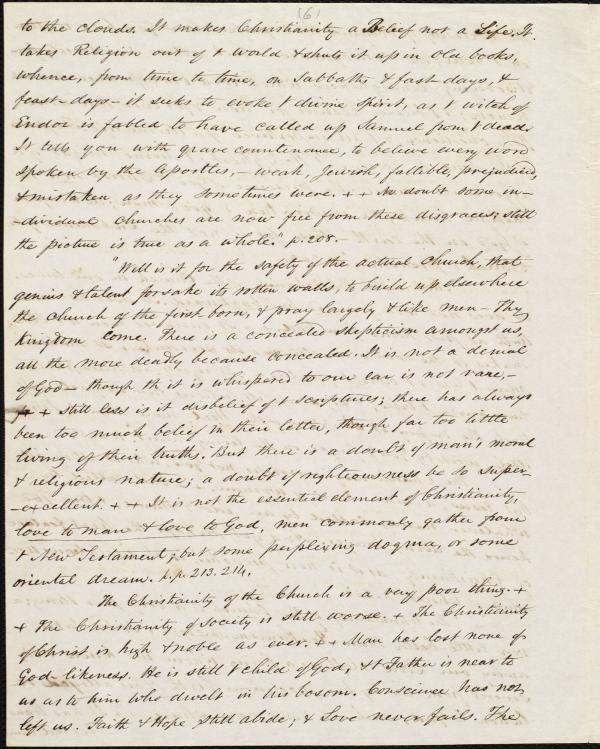 (6)
to the clouds. It makes Christianity a Belief not a Life. It
takes Religion out of t world & shuts it up in old books,
whence, from time to time, on Sabbaths & fast-days, &
feast-days – it seeks to evoke t divine spirit, as t witch of
Endor is fabled to have called up Samuel from t dead.
It tells you with grave countenance, to believe every word
spoken by the Apostles, – weak, Jewish, fallible, prejudiced,
& mistaken as they sometimes were. + + No doubt some in-
-dividual churches are now free from these disgraces; still
the picture is true as a whole." p. 208.
"Well is it for the safety of the actual Church, that
genius & talent forsake its rotten walls, to build up elsewhere
the church of the first born, & pray largely & like men – Thy
kingdom come. There is a concealed skepticism amongst us,
all the more deadly because concealed. It is not a denial
of God – though th it is whispered to our ear is not rare, –
+ still less is it disbelief of t scriptures; there has always
been too much belief in their letter, though far too little
living of their truths. But there is a doubt of man's moral
& religious nature; a doubt if righteousness be so super-
-excellent. + + It is not the essential element of Christianity,
love to man & love to God, men commonly gather from
t New Testament; but some perplexing dogma, or some
oriental dream. p.p. 213. 214.
The Christianity of the Church is a very poor thing. +
+ The Christianity of society is still worse. + The Christianity
of Christ is high & noble as ever. + + Man has lost none of
God-likeness. He is still t child of God, & t Father is near to
us as to him who dwelt in his bosom. Conscience has not
left us. Faith & Hope still abide; & Love never fails. The